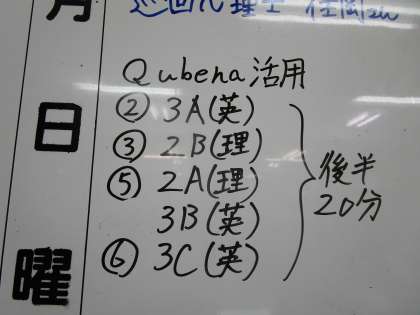 月
日
曜
Qubena活用
② 3A(英)
③ 2B(理)
⑤ 2A(理)
3B(英)
⑥ 3C(英)
後半
20分